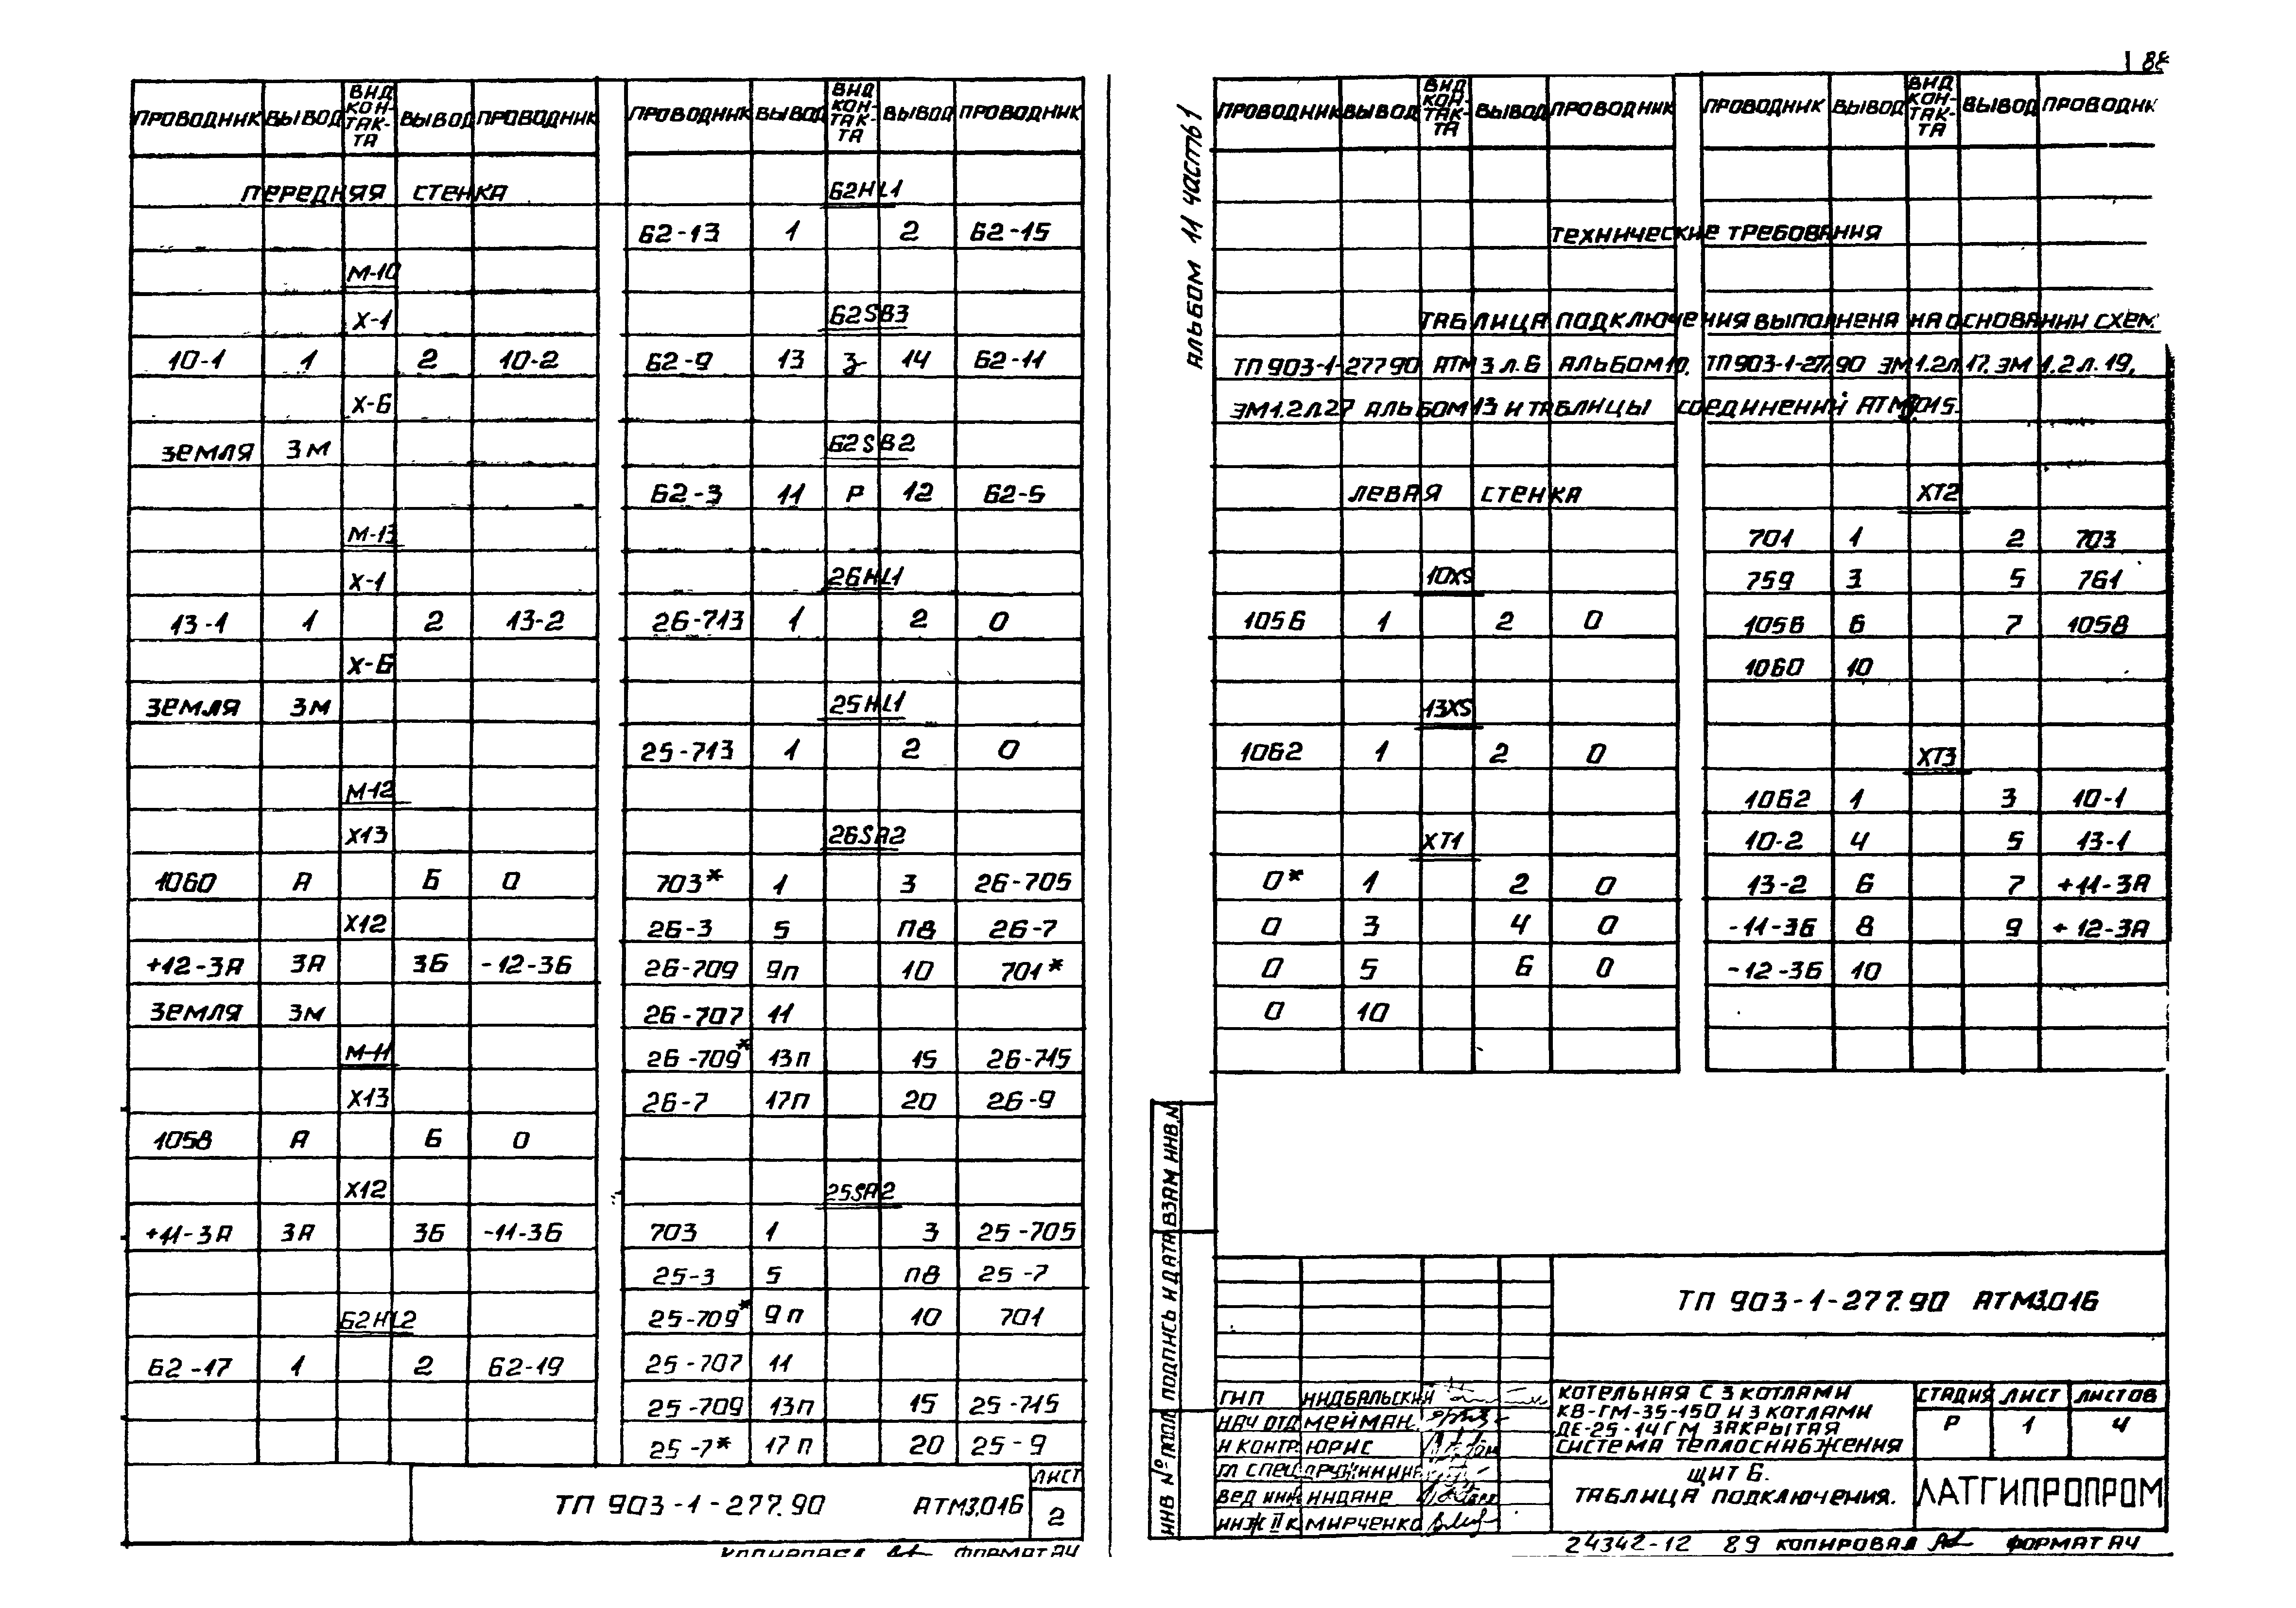 88
ПРОВОДНИК ВЫВОД ВИД КОНТАКТА ВЫВОД ПРОВОДНИК
ПЕРЕДНЯЯ СТЕНКА
М-10
Х-1
10-1 1 2 10-2
Х-6
ЗЕМЛЯ ЗМ
М-13
Х-1
13-1 1 2 13-2
Х-6
ЗЕМЛЯ ЗМ
М-12
Х13
1060 А Б 0
Х12
+12-3А 3А 3Б -12-3Б
ЗЕМЛЯ ЗМ
М-11
Х13
1058 А Б 0
Х12
+11-3А 3А 3Б -11-3Б
62HL2
62-17 1 2 62-19
ПРОВОДНИК ВЫВОД ВИД КОНТАКТА ВЫВОД ПРОВОДНИК
62HL1
62-13 1 2 62-15
62SB3
62-9 13 З 14 62-11
62SB2
62-3 11 Р 12 62-5
26HL1
26-713 1 2 0
25HL1
25-713 1 2 0
26SA2
703* 1 3 26-705
26-3 5 П8 26-7
26-709 9П 10 701*
26-707 11
26-709* 13П 15 26-715
26-7 17П 20 26-9
25SA2
703 1 3 25-705
25-3 5 П8 25-7
25-709* 9П 10 701
25-707 11
25-709 13П 15 25-715
25-7* 17П 20 25-9
ТП 903-1-277.90 АТМ3.016
ЛИСТ
2
КОПИРОВАЛ ФОРМАТ А4
АЛЬБОМ 11 ЧАСТЬ 1
ПРОВОДНИК ВЫВОД ВИД КОНТАКТА ВЫВОД ПРОВОДНИК
ПРОВОДНИК ВЫВОД ВИД КОНТАКТА ВЫВОД ПРОВОДНИК
ТЕХНИЧЕСКИЕ ТРЕБОВАНИЯ
ТАБЛИЦА ПОДКЛЮЧЕНИЯ ВЫПОЛНЕНА НА ОСНОВАНИИ СХЕМ
ТП 903-1-277.90 АТМ 3 Л.6 АЛЬБОМ 10, ТП 903-1-277.90 ЭМ1.2Л.17, ЭМ 1.2 Л.19,
ЭМ1.2Л27 АЛЬБОМ 13 И ТАБЛИЦЫ СОЕДИНЕНИЙ АТМ3.015.
ЛЕВАЯ СТЕНКА
10XS
1056 1 2 0
13XS
1062 1 2 0
ХТ1
0* 1 2 0
0 3 4 0
0 5 6 0
0 10
ХТ2
701 1 2 703
759 3 5 761
1056 6 7 1058
1060 10
ХТ3
1062 1 3 10-1
10-2 4 5 13-1
13-2 6 7 +11-3А
-11-3Б 8 9 +12-3А
-12-3Б 10
ВЗАМ ИНВ.N
ПОДПИСЬ И ДАТА
ИНВ № ПОДЛ
ТП 903-1-277.90 АТМ3.016
ГИП НИДБАЛЬСКИЙ
НАЧ ОТД МЕЙМАН
Н КОНТР ЮРИС
ГЛ СПЕЦ ДРУЖИНИНА
ВЕД ИНЖ ИНДАНЕ
ИНЖ II К МИРЧЕНКО
КОТЕЛЬНАЯ С 3 КОТЛАМИ
КВ-ГМ-35-150 И 3 КОТЛАМИ
ДЕ-25-14ГМ ЗАКРЫТАЯ
СИСТЕМА ТЕПЛОСНАБЖЕНИЯ
СТАДИЯ ЛИСТ ЛИСТОВ
Р 1 4
ЩИТ 6.
ТАБЛИЦА ПОДКЛЮЧЕНИЯ.
ЛАТГИПРОПРОМ
24342-12 89 КОПИРОВАЛ ФОРМАТ А4